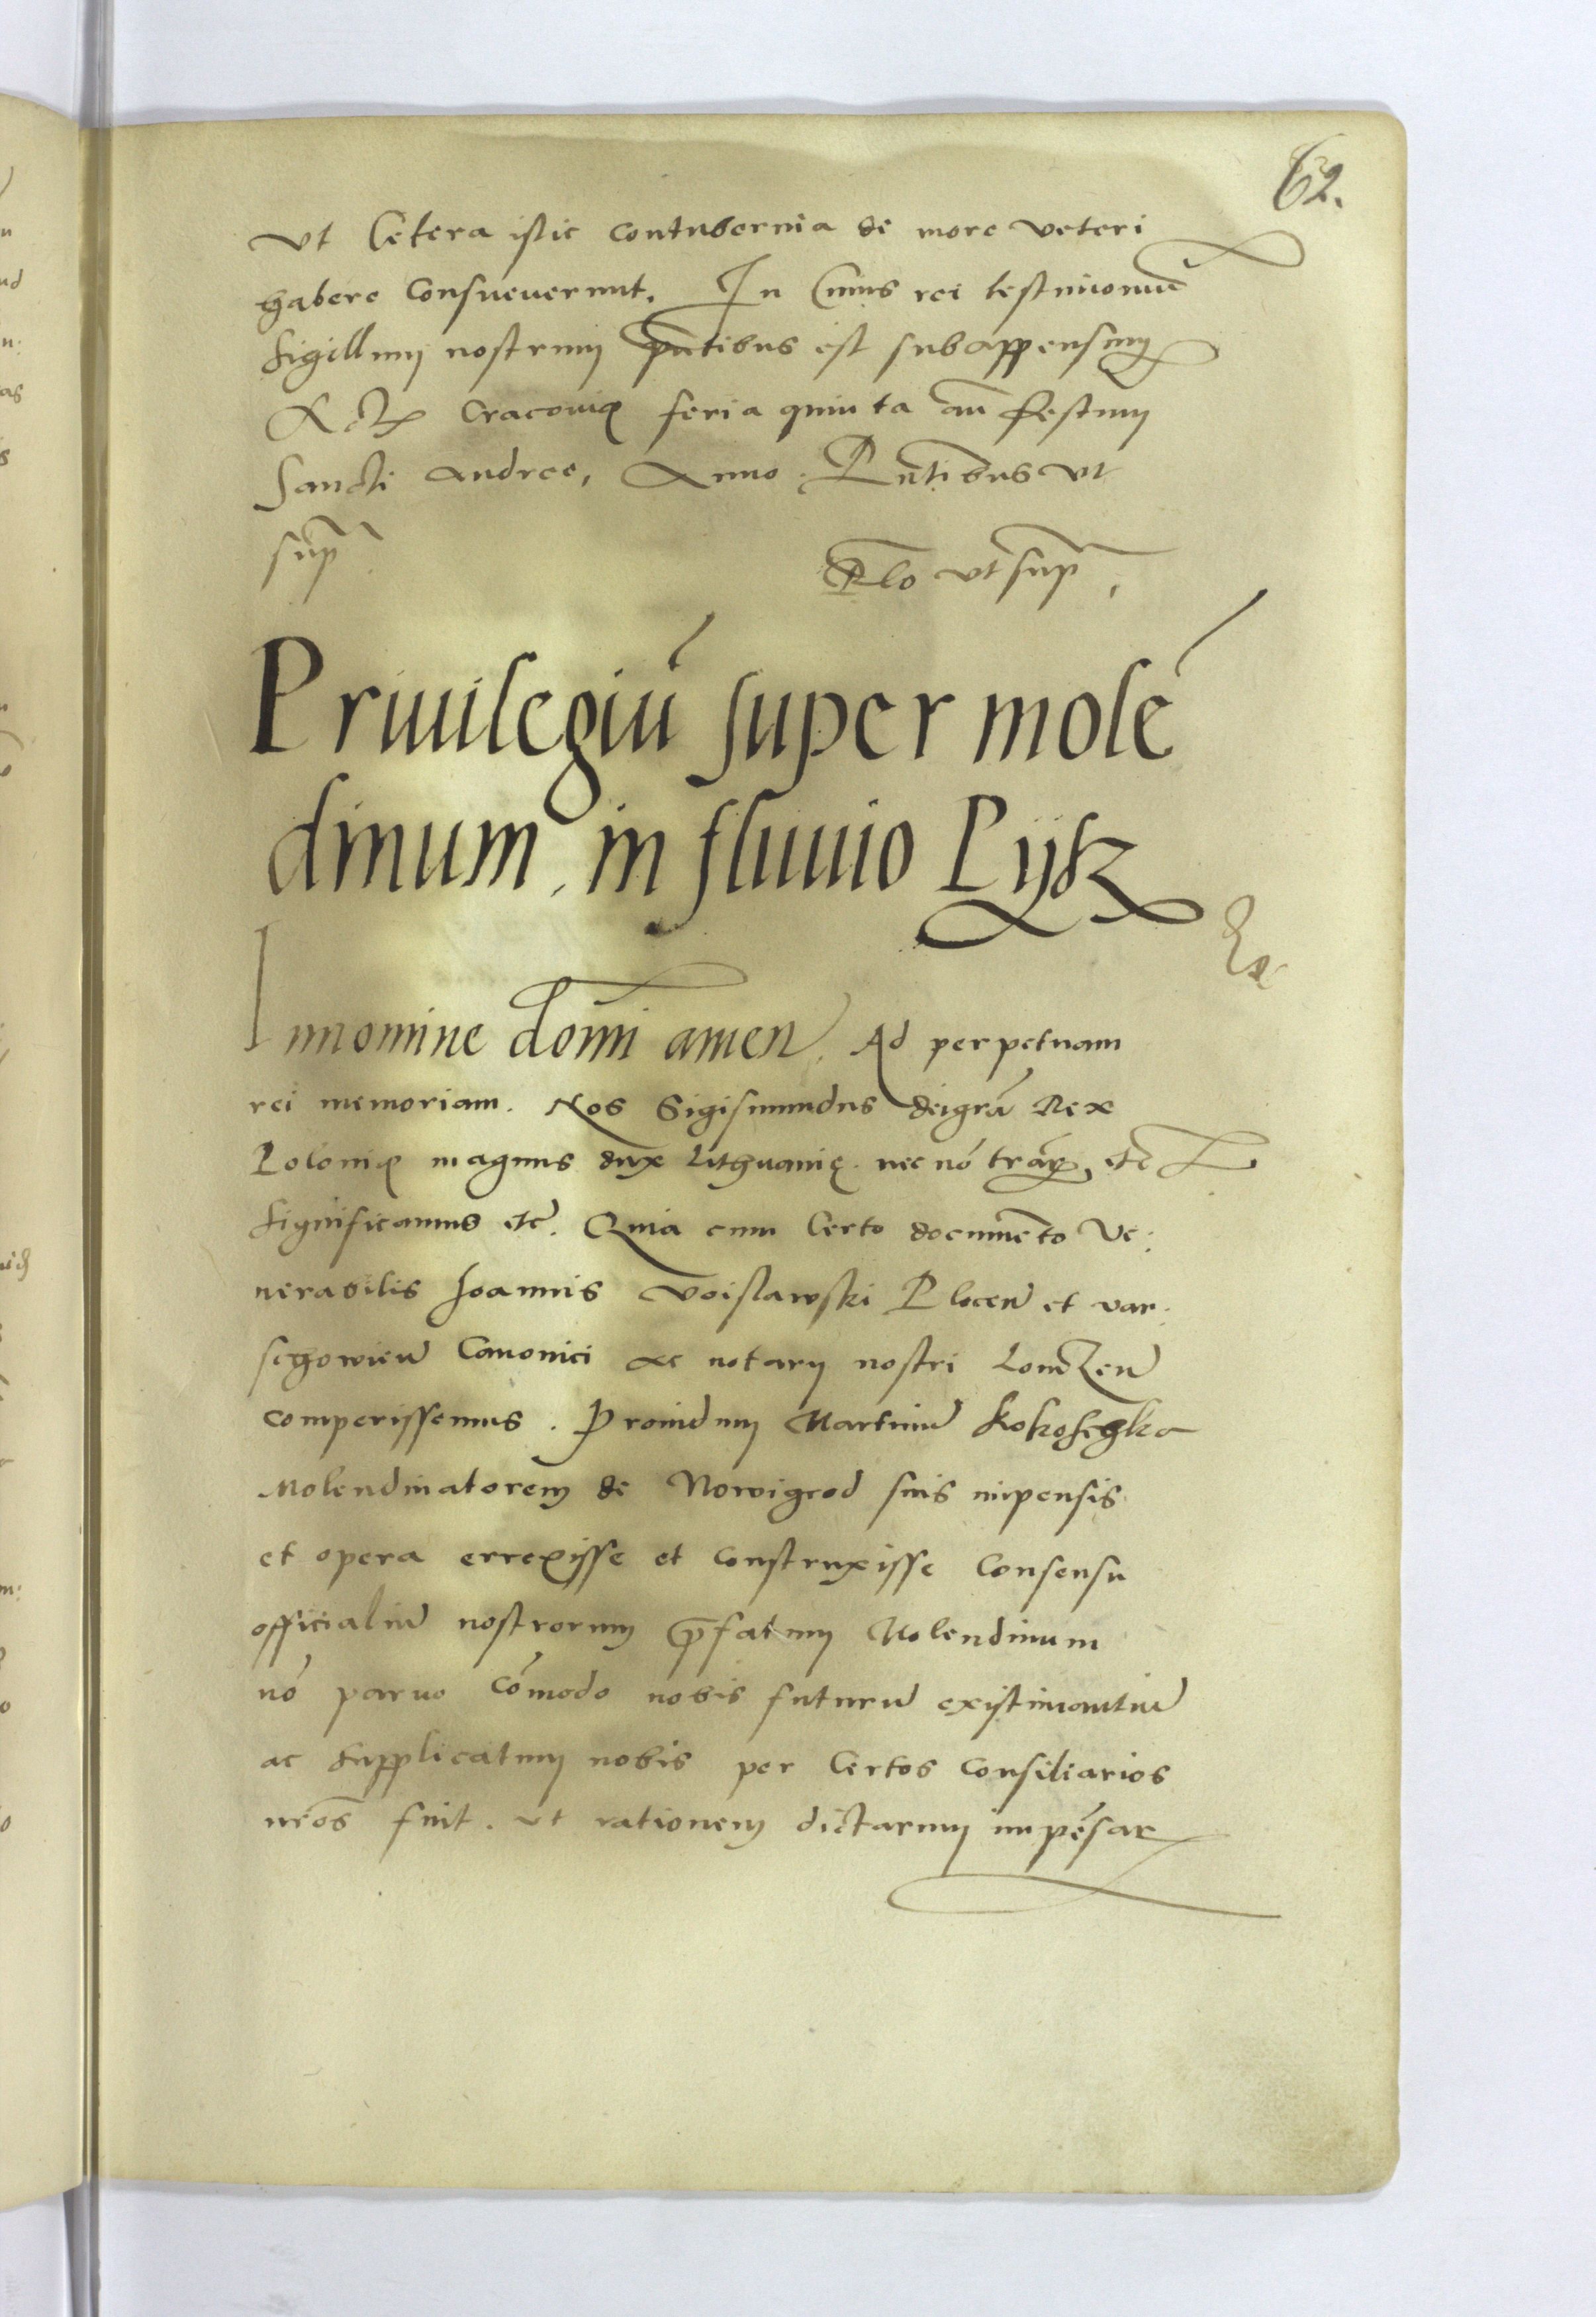 62.
vt Cetera istic contubernia de more veteri
habere Consueuerunt. In Cuius rei testimoniu̅
Sigillum nostrum pn̅tibus est subappensum
Act̅ Cracouię feria quinta an̅ festum
Sancti Andree, Anno. Pn̅tibus vt
sup̅
Rl̅o vt sup̅.
Priuilegiu̅ super mole̅
dinum, in fluuio Pysz
In nomine dom̅i amen. Ad perpetuam
rei memoriam. Nos Sigismundus deigra̅ Rex
Polonię magnus dux Lithuanię. nec no̅ trar̅, etc̅
Significamus etc̅. Quia cum Certo documen̅to Ve:
nerabilis Joannis Voislawski Plocen̅ et var:
schowien̅ Canonici ac notarij nostri Lomzen̅
comperissemus. Prouidum Martinu̅ Kokoschka
Molendinatorem de Nowigrod suis impensis
et opera errexisse et construxisse Consensu
officialiu̅ nostrorum p̅fatum Molendinum
no̅ paruo Co̅modo nobis futuru̅ existimantiu̅
ac supplicatum nobis per Certos Consiliarios
nr̅os fuit. vt rationem dictarum impe̅sar̅